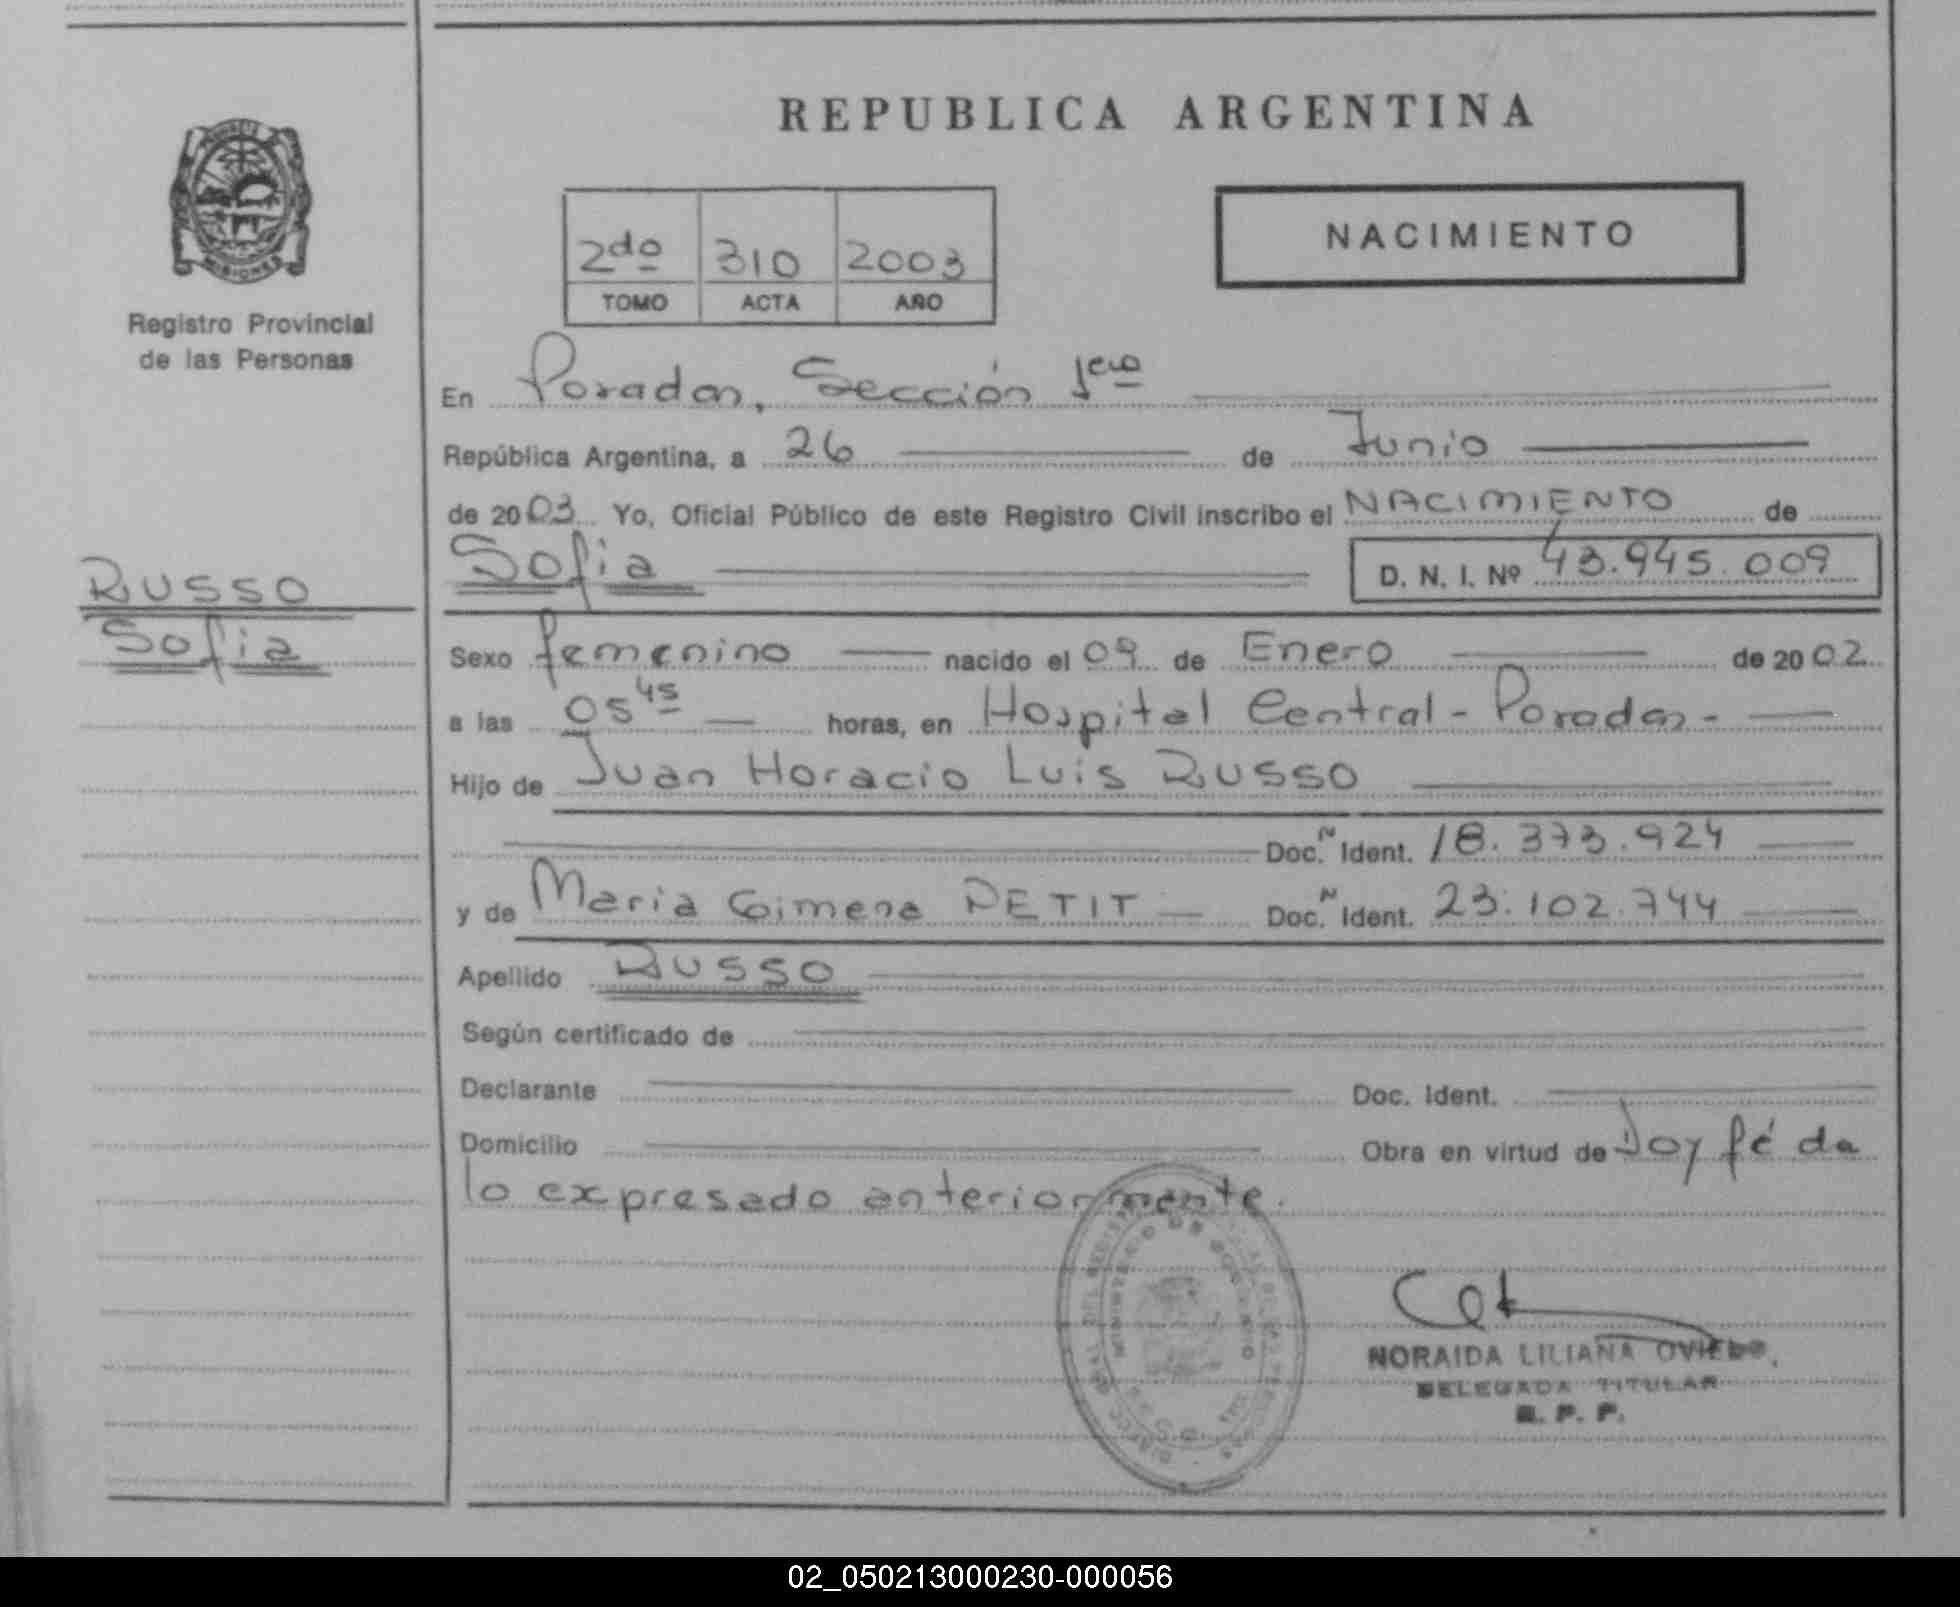 REPUBLICA ARGENTINA
MISIONES
Registro Provincial
de las Personas
2do 310 2003
TOMO ACTA AÑO
NACIMIENTO
En Posadas, Sección 1era
República Argentina, a 26 de Junio
de 2003 Yo, Oficial Público de este Registro Civil inscribo el NACIMIENTO de
Sofia D. N. I. Nº 43.945.009
RUSSO
Sofia
Sexo femenino nacido el 09 de Enero de 2002
a las 05 45 horas, en Hospital Central - Posadas -
Hijo de Juan Horacio Luis RUSSO
Doc. N Ident. 18.373.924
y de Maria Gimena PETIT Doc. N Ident. 23.102.744
Apellido RUSSO
Según certificado de
Declarante Doc. Ident.
Domicilio Obra en virtud de Doy fé de
lo expresado anteriormente.
MINISTERIO DE GOBIERNO
NORAIDA LILIANA OVIEDO
DELEGADA TITULAR
R. P. P.
02_050213000230-000056